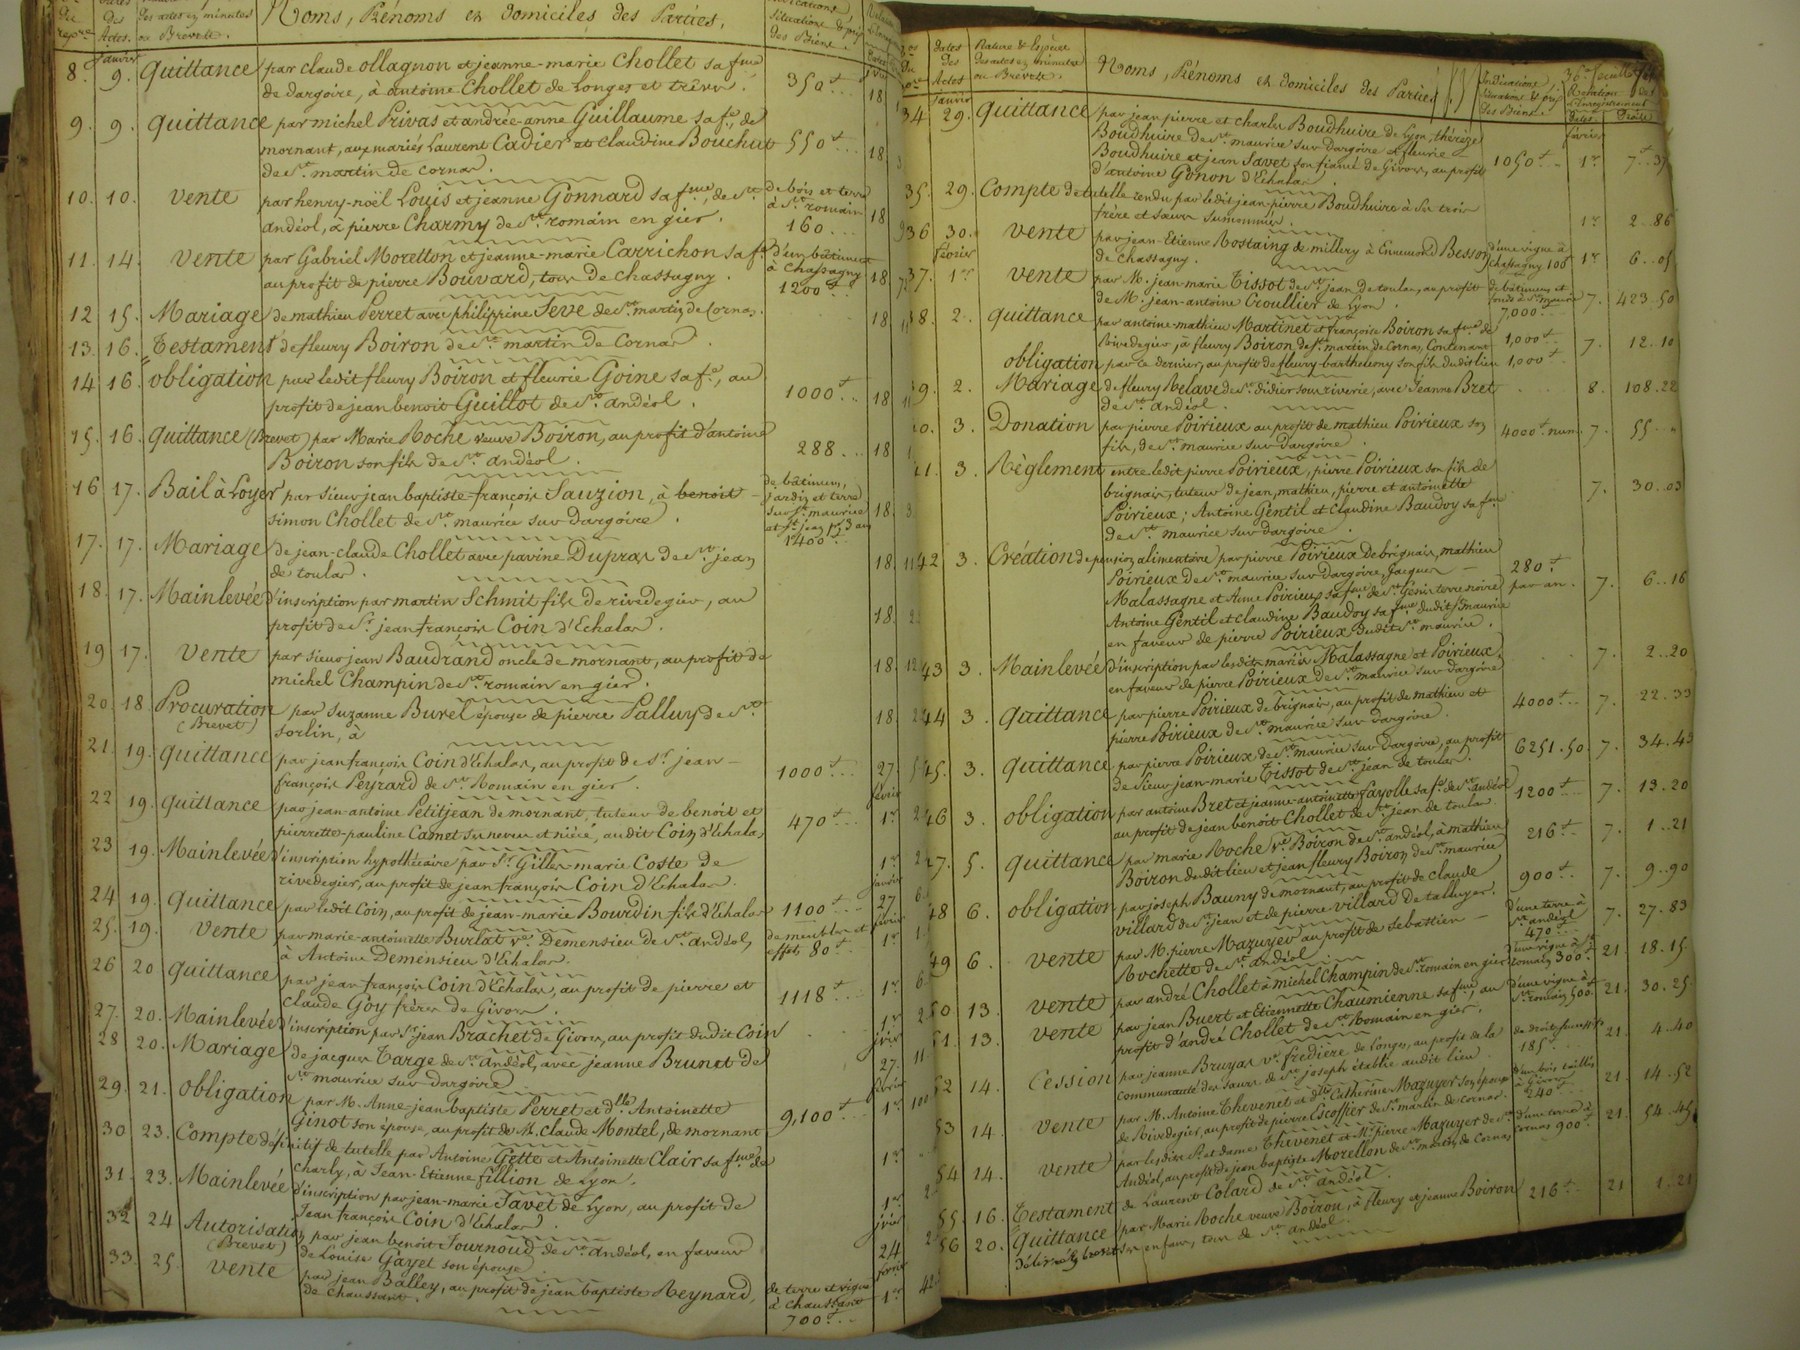 Noms, Prénoms et domiciles des Parties.
8. 9. Quittance par claude ollagnon et jeanne-marie Chollet sa fme
de dargoire, à antoine Chollet de Longes et trêves. 350
9. 9. Quittance par michel Privas et andrée-anne Guillaume sa fe, de
mornant, aux mariés Laurent Cadier et Claudine Bouchut 550
de St. martin de cornas.
10. 10. vente par henry-noël Louis et jeanne Gonnard sa fme, de St. de bois et terre
andéol, à pierre Charmy de St. romain en gier. à St. romain 160
11. 14. vente par Gabriel Morellon et jeanne-marie Carrichon sa fe d'un bâtiment
au profit de pierre Bouvard, tous de chassagny. à Chassagny 1200
12 15. Mariage de mathieu Perret avec philippine Seve de St. martin de Cornas.
13. 16. Testament de fleury Boiron de St. martin de Cornas.
14 16. obligation par ledit fleury Boiron et fleurie Goine sa fe, au
profit de jean benoit Guillot de St. andéol. 1000
15. 16. Quittance (Brevet) par Marie Roche veuve Boiron, au profit d'antoine
Boiron son fils de St. andéol. 288
16 17. Bail à Loyer par sieur jean baptiste-françois Sauzion, à benoit de bâtimens, jardin et terre
simon Chollet de St. maurice sur dargoire. sur St. maurice et St. jean pr. 3 ans 1400
17. 17. Mariage de jean-claude Chollet avec pavine Dupras de St. jean
de toulas.
18. 17. Mainlevée d'inscription par martin Schmit fils de rivedegier, au
profit de Sr. jean françois Coin d'Echalas.
19 17. vente par sieur jean Baudrand oncle de mornant, au profit de
michel Champin de St. romain en gier.
20 18 Procuration par Suzanne Burel épouse de pierre Palluy de St.
(Brevet) sorlin, à
21. 19. Quittance par jean françois Coin d'Echalas, au profit de Sr. jean-
françois Peyrard de St. Romain en gier. 1000
22 19. Quittance par jean-antoine Petitjean de mornant, tuteur de benoit et
pierrette-pauline Camet ses neveu et nièce, audit Coin d'Echalas 470
23 19. Mainlevée d'inscription hypothécaire par Sr. Gilles-marie Coste de
rivedegier, au profit de jean françois Coin d'Echalas.
24 19. Quittance par ledit Coin, au profit de jean-marie Bourdin fils d'Echalas 1100
25. 19. vente par marie-antoinette Burlat ve. Demensieu de St. andéol, de meubles et
à Antoine Demensieu d'Echalas. effets 80
26 20 Quittance par jean françois Coin d'Echalas, au profit de pierre et
Claude Goy frères de Givors. 1118
27. 20. Mainlevée d'inscription par Sr. jean Brachet de Givors, au profit dudit Coin
28 20. Mariage de jacques Targe de St. andéol, avec jeanne Brunet de
St. maurice sur dargoire
29. 21. obligation par M. Anne-jean baptiste Perret et dlle. Antoinette
Ginot son épouse, au profit de M. Claude Montel, de mornant 9,100
30 23. Compte définitif de tutelle par Antoine Gette et Antoinette Clair sa fme de
Charly, à Jean-Etienne fillion de Lyon.
31. 23. Mainlevée d'inscription par jean-marie Javet de Lyon, au profit de
Jean françois Coin d'Echalas.
32 24 Autorisation par jean benoit Journoud de St. andéol, en faveur
(Brevet) de Louise Gayet son épouse
33. 25 vente par jean Balley, au profit de jean baptiste Reynard, de terre et vigne
de chaussant. à chaussant 700
Nature & Espèce
Noms, Prénoms et domiciles des Parties
34 29. Quittance par jean pierre et charles Boudhuire de Lyon, thérèze
Boudhuire de St. maurice sur dargoire et fleurie
Boudhuire et jean Savet son fiancé de Givors, au profit
d'antoine Gonon d'Echalas. 1050 1er 7..37
35. 29. Compte de tutelle rendu par ledit jean-pierre Boudhuire à ses trois
frère et sœurs susnommés. 1er 2..86
36 30. vente par jean-Etienne Rostaing de millery à Ennemond Besson d'une vigne à
de chassagny. chassagny 106 1er 6..05
février
37. 1er vente par M. jean-marie Tissot de St. jean de toulas, au profit de bâtimens et
de M. jean-antoine Croullier de Lyon. fonds à St. maurice 7,000 7. 423.50
38. 2. Quittance par antoine-mathieu Martinet et françoise Boiron sa fme de
Rivedegier, à fleury Boiron de St. martin de Cornas, Contenant 1,000 7. 12.10
obligation par ce dernier, au profit de fleury-barthelemy son fils dudit lieu 1,000
39. 2. Mariage de fleury Relave de St. didier sous riverie, avec Jeanne Bret
de St. andéol. 8. 108.22
40. 3. Donation par pierre Poirieux au profit de mathieu Poirieux son
fils, de St. maurice sur dargoire. 4000 num. 7. 55
41. 3. Règlement entre ledit pierre Poirieux, pierre Poirieux son fils de
brignais, tuteur de jean, mathieu, pierre et antoinette
Poirieux; Antoine Gentil et Claudine Baudoy sa fme
de St. maurice sur dargoire. 7. 30..03
42 3. Création de pension alimentaire par pierre Poirieux de brignais, mathieu
Poirieux de St. maurice sur dargoire, jacques 280
Malassagne et Anne Poirieux sa fme de St. Genis terre noire, par an. 7. 6..16
Antoine Gentil et Claudine Baudoy sa fme dudit St. maurice
en faveur de pierre Poirieux dudit St. maurice.
43 3. Mainlevée d'inscription par lesdits mariés Malassagne et Poirieux,
en faveur de pierre Poirieux de St. maurice sur dargoire 7. 2..20
44 3. Quittance par pierre Poirieux de brignais, au profit de mathieu et
pierre Poirieux de St. maurice sur dargoire. 4000 7. 22..33
45. 3. Quittance par pierre Poirieux de St. maurice sur dargoire, au profit
de Sieur jean-marie Tissot de St. jean de toulas. 6251.50 7. 34.43
46 3. obligation par antoine Bret et jeanne-antoinette fayolle sa fe de St. andéol
au profit de jean benoit Chollet de St. jean de toulas. 1200 7. 13.20
47. 5. Quittance par marie Roche ve. Boiron de St. andéol, à mathieu
Boiron dudit lieu et jean fleury Boiron de St. maurice 216 7. 1..21
48 6. obligation par joseph Bauny de mornant, au profit de claude
villard de St. jean et de pierre villard de talluyer. 900 7. 9..90
49 6. vente par M. pierre Mazuyer au profit de Sebastien d'une terre à
Rochette de St. andéol St. andéol 470 7. 27.83
50 13. vente par andré Chollet à michel Champin de St. romain en gier d'une vigne à St. romain 300 21 18.15
51. 13. vente par jean Buert et Etiennette Chaumienne sa fme, au d'une vigne à
profit d'andré Chollet de St. Romain en gier. St. romain 500 21. 30.25
52 14. Cession par jeanne Bruyas ve. fredière de Longes, au profit de la
communauté des sœurs de St. joseph établie audit lieu. 185 21. 4..40
53 14. vente par M. Antoine Thevenet et dlle Catherine Mazuyer son épouse
de Rivedegier, au profit de pierre Escoffier de St. martin de cornas. 240 21. 14..52
54 14. vente par lesdits Sr. et dame Thevenet et Mr. pierre Mazuyer de St. d'une terre à
Andéol, au profit de jean baptiste Morellon de St. martin de Cornas Cornas 900 21. 54.45
55. 16. Testament de Laurent Colard de St. andéol.
56 20. Quittance par Marie Roche veuve Boiron, à fleury et jeanne Boiron 216 21 1..21
ses enfans, tous de St. andéol.